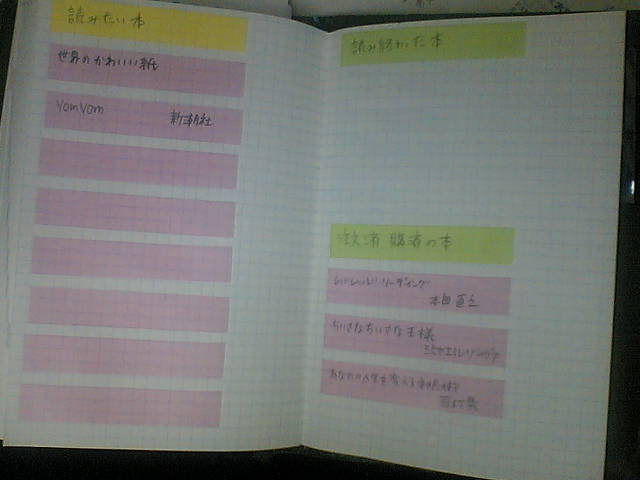 読みたい本
世界のかわいい紙
yomyom 新潮社
読み終わった本
注文済 購済の本
レバレッジリーディング
本田直之
ちいさなちいさな王様
ミヒャエル
あなたの人生を変える